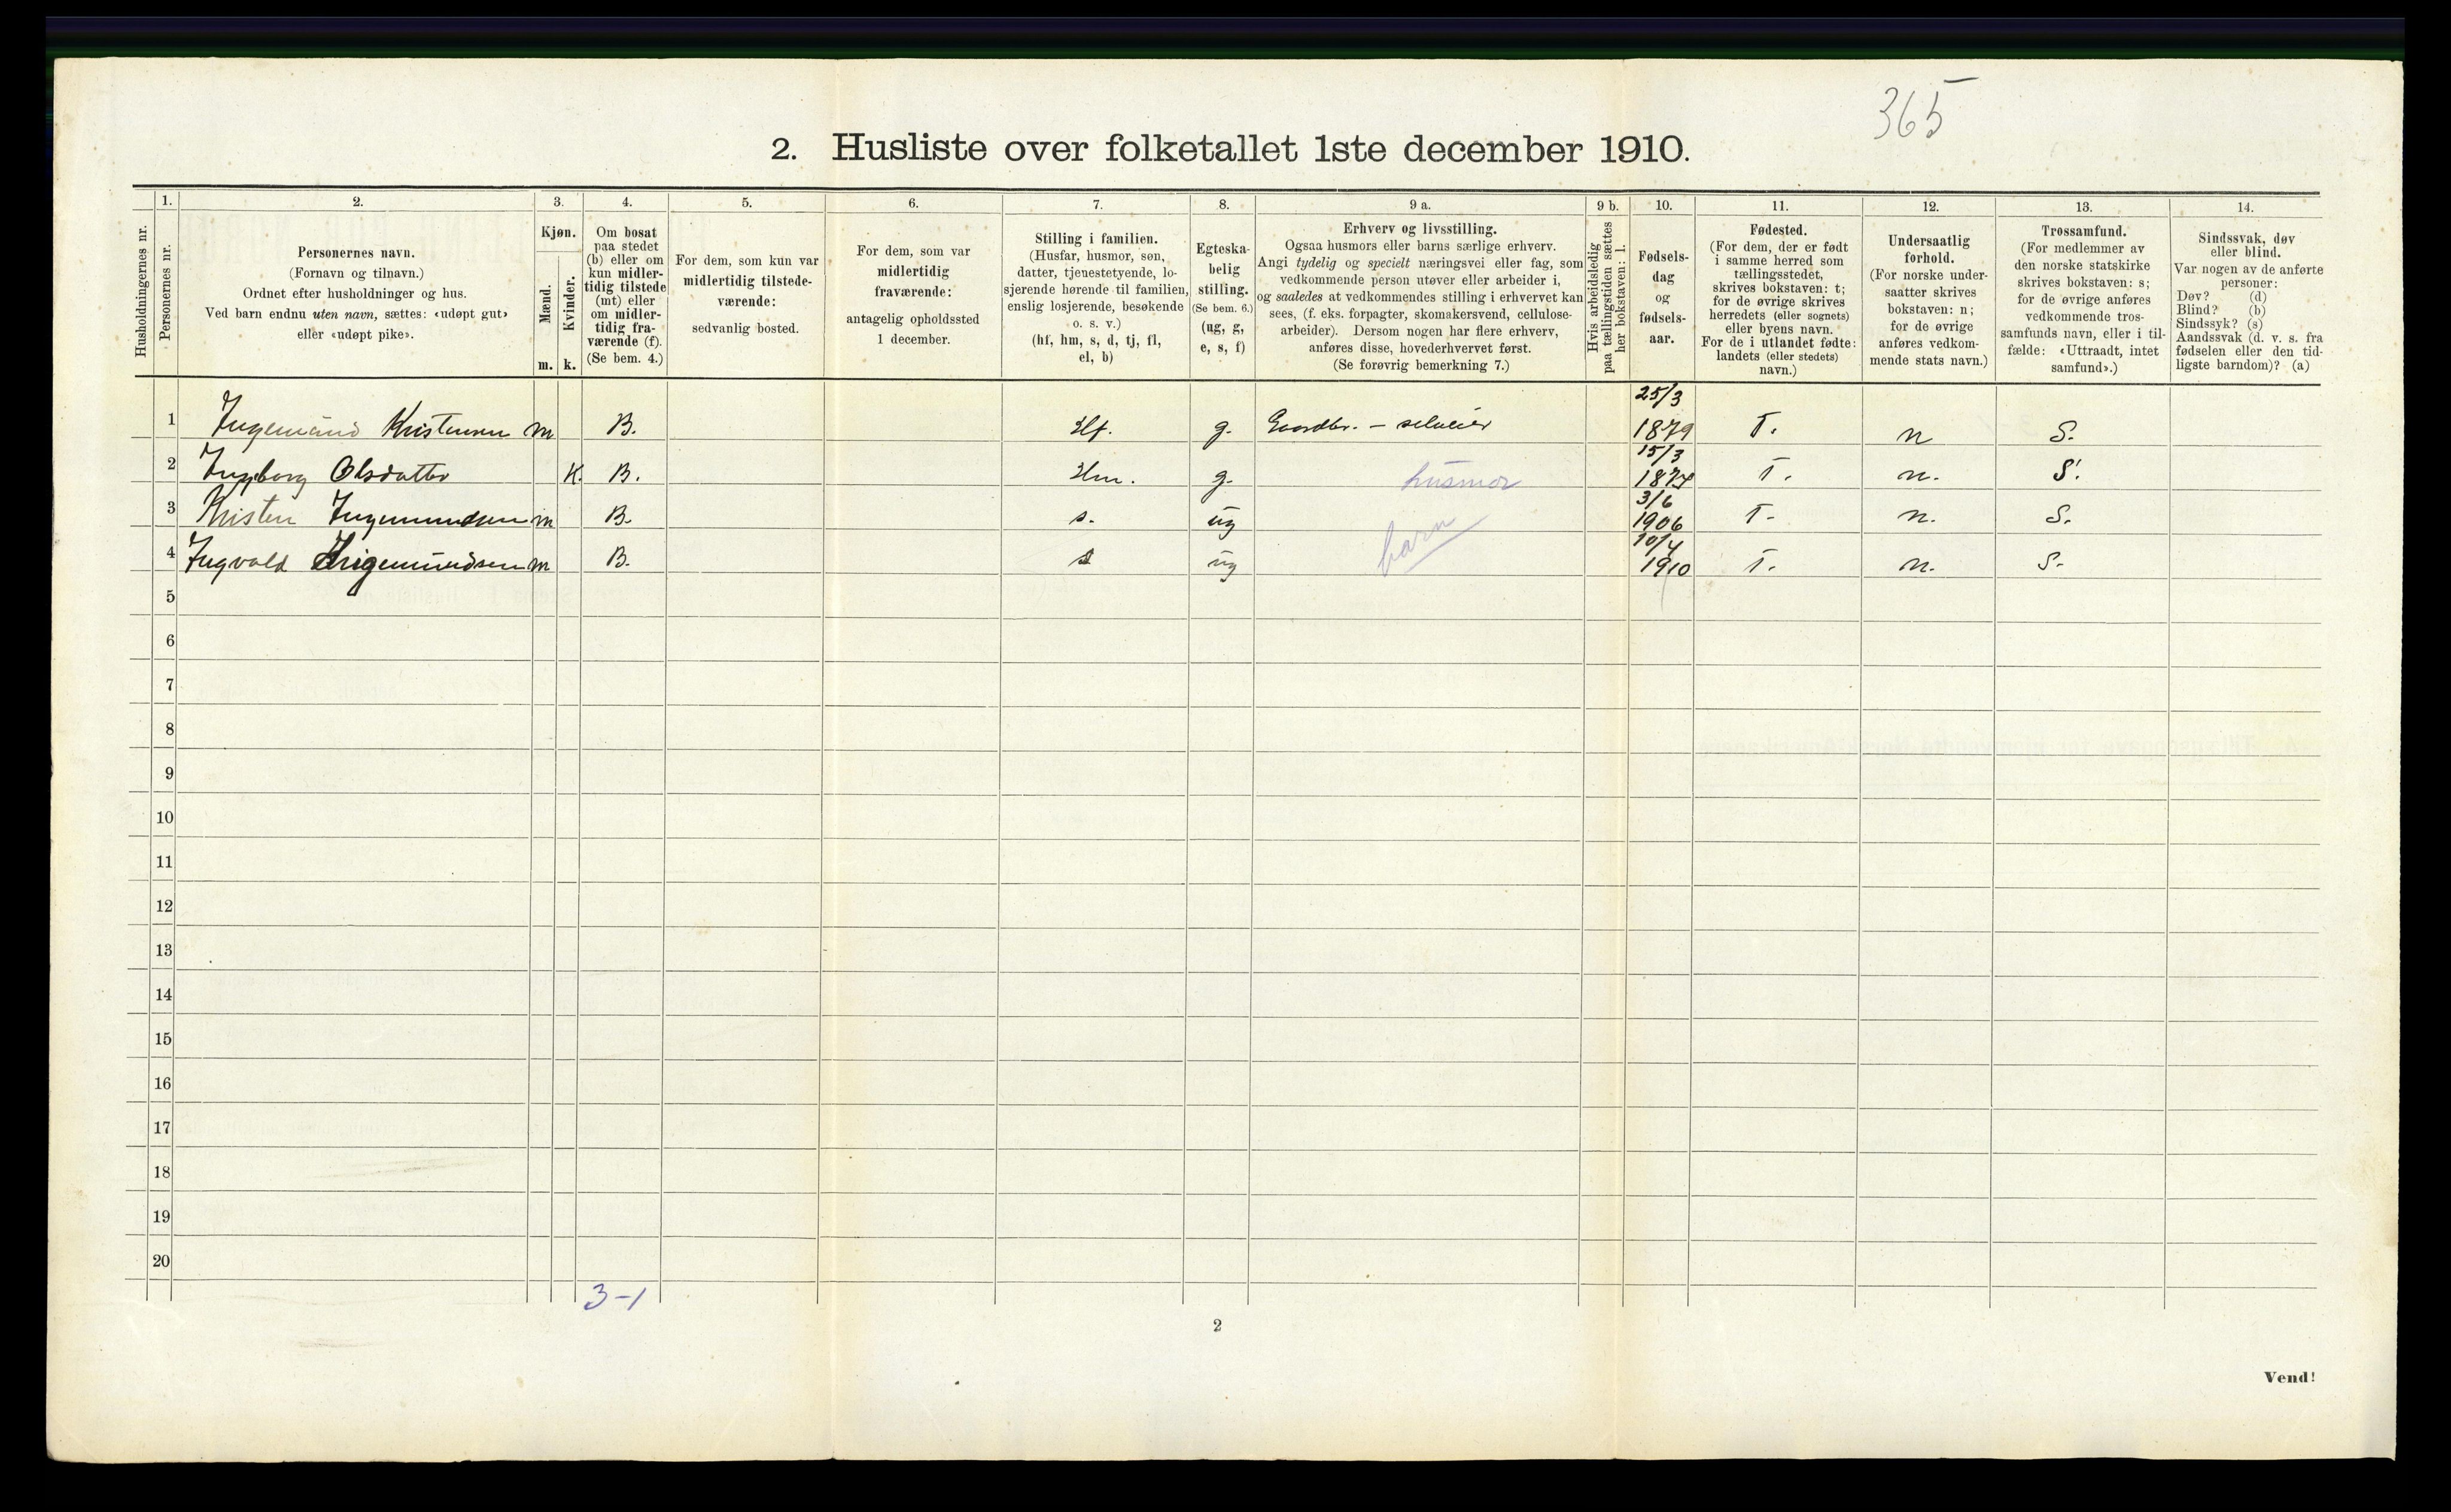 365
2. Husliste over folketallet 1ste december 1910.
Husholdningernes nr.
1.
Personernes nr.
2.
Personernes navn.
(Fornavn og tilnavn.)
Ordnet efter husholdninger og hus.
Ved barn endnu uten navn, sættes: «udøpt gut»
eller «udøpt pike».
3.
Kjøn.
Mænd.
Kvinder.
m. k.
4.
Om bosat
paa stedet
(b) eller om
kun midler-
tidig tilstede
(mt) eller
om midler-
tidig fra-
værende (f).
(Se bem. 4.)
5.
For dem, som kun var
midlertidig tilstede-
værende:
sedvanlig bosted.
6.
For dem, som var
midlertidig
fraværende:
antagelig opholdssted
1 december.
7.
Stilling i familien.
(Husfar, husmor, søn,
datter, tjenestetyende, lo-
sjerende hørende til familien,
enslig losjerende, besøkende
o. s. v.)
(hf, hm, s, d, tj, fl,
el, b)
8.
Egteska-
belig
stilling.
(Se bem. 6.)
(ug, g,
e, s, f)
9 a.
Erhverv og livsstilling.
Ogsaa husmors eller barns særlige erhverv.
Angi tydelig og specielt næringsvei eller fag, som
vedkommende person utøver eller arbeider i,
og saaledes at vedkommendes stilling i erhvervet kan
sees, (f. eks. forpagter, skomakersvend, cellulose-
arbeider). Dersom nogen har flere erhverv,
anføres disse, hovederhvervet først.
(Se forøvrig bemerkning 7.)
9 b.
Hvis arbeidsledig
paa tællingstiden sættes
her bokstaven: l.
10.
Fødsels-
dag
og
fødsels-
aar.
11.
Fødested.
(For dem, der er født
i samme herred som
tællingsstedet,
skrives bokstaven: t;
for de øvrige skrives
herredets (eller sognets)
eller byens navn.
For de i utlandet fødte:
landets (eller stedets)
navn.)
12.
Undersaatlig
forhold.
(For norske under-
saatter skrives
bokstaven: n;
for de øvrige
anføres vedkom-
mende stats navn.)
13.
Trossamfund.
(For medlemmer av
den norske statskirke
skrives bokstaven: s;
for de øvrige anføres
vedkommende tros-
samfunds navn, eller i til-
fælde: «Uttraadt, intet
samfund».)
14.
Sindssvak, døv
eller blind.
Var nogen av de anførte
personer:
Døv? (d)
Blind? (b)
Sindssyk? (s)
Aandssvak (d. v. s. fra
fødselen eller den tid-
ligste barndom)? (a)
1 Ingemund Kristensen m B. Hf. g. Gaardbr. - selveier 25/3 1879 T. n S.
2 Ingborg Olsdatter K. B. Hm. g. husmor 15/3 T. n. S.
3 Kristen Ingemundsen m B. s. ug barn 3/6 1906 T. n. S.
4 Ingvald Ingemundsen m B. s ug 10/4 1910 T. n. S.
5
6
7
8
9
10
11
12
13
14
15
16
17
18
19
20
3-1
2
Vend!